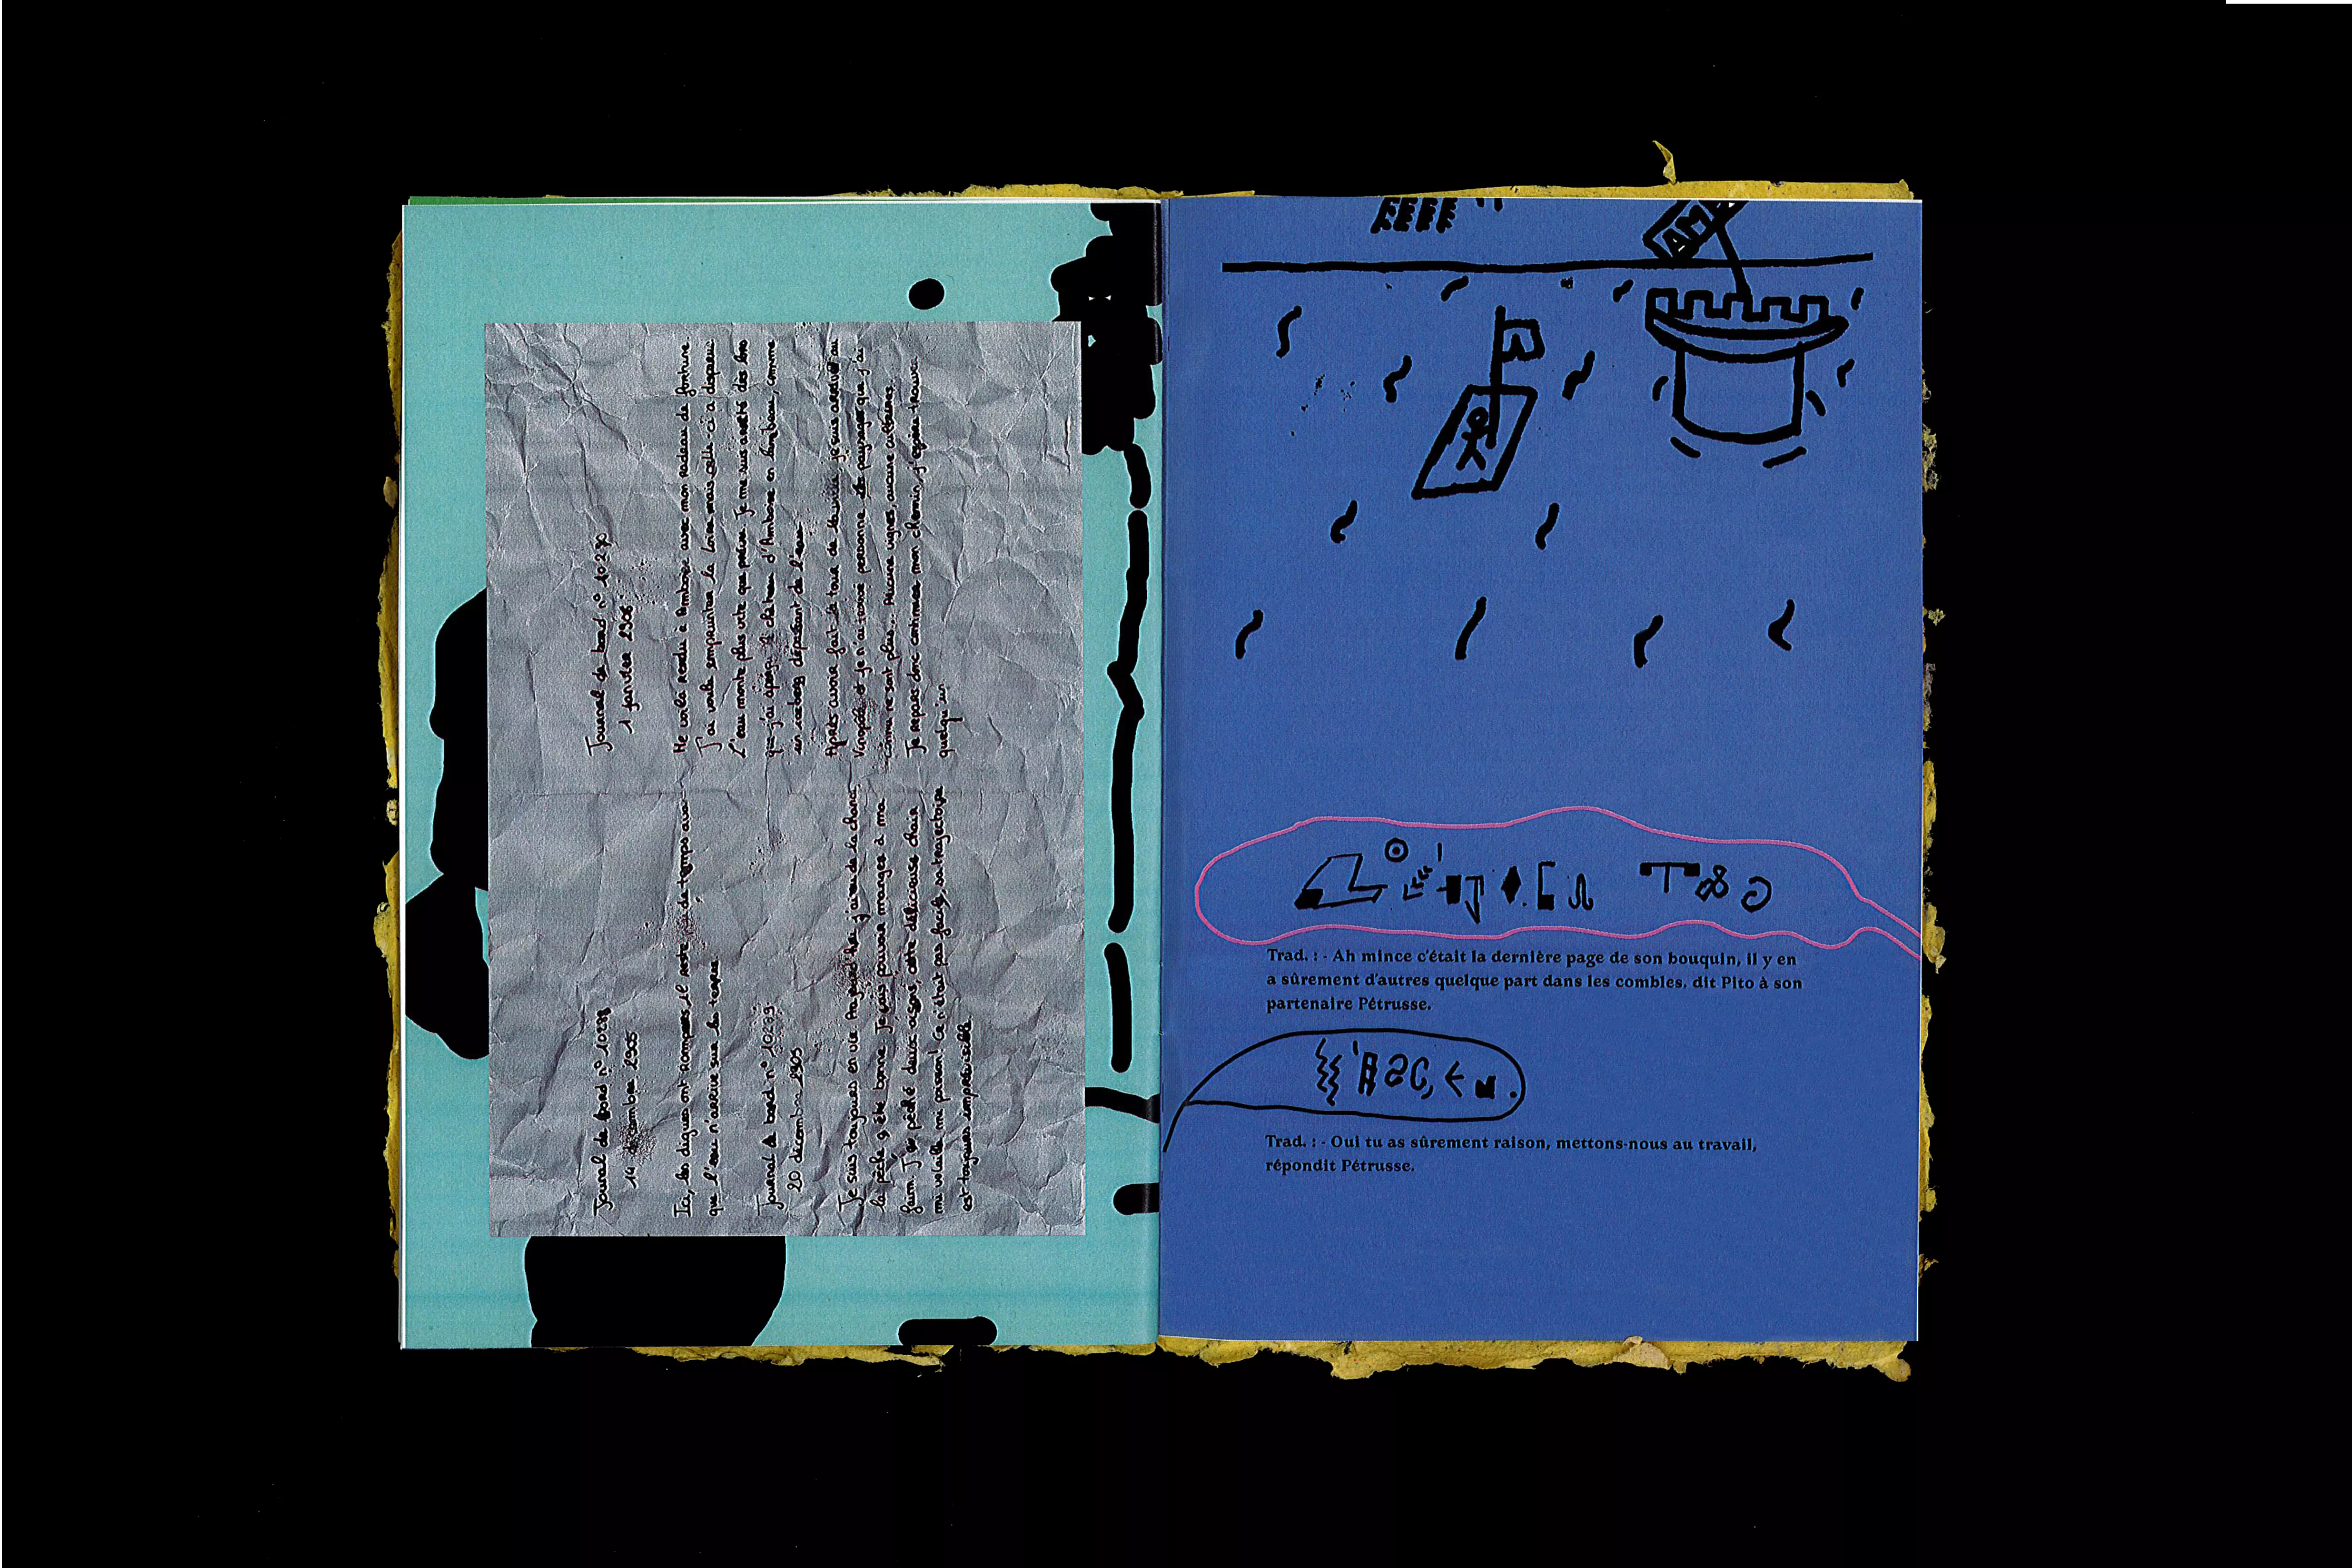 Journal de bord n°
14 décembre 2905
Ici, les digues ont rompues il reste de temps avant
que l'eau n'arrive sur les terres
Journal de bord n°
20 décembre 2905
Je suis toujours en vie Aujourd'hui, j'ai eu de la chance,
la pêche a été bonne. Je vais pouvoir manger à ma
faim. J'ai pêché deux cygnes, cette délicieuse chair
mi volaille mi poisson! Ce n'était pas facile, sa trajectoire
est toujours imprévisible
Journal de bord n°
1 janvier 2906
Me voilà rendu à Amboise avec mon radeau de fortune.
J'ai voulu emprunter la Loire mais celle ci a disparu.
L'eau monte plus vite que prévu. Je me suis arrêté dès lors
que j'ai aperçu le château d'Amboise en lambeau, comme
un iceberg dépassant de l'eau.
Après avoir fait le tour de la ville je suis arrivé au
et je n'ai trouvé personne paysages que j'ai
connu ne sont plus... Aucune vignes, aucune cultures.
Je repars donc continuer mon chemin, j'espère trouver
quelqu'un
Trad. : - Ah mince c'était la dernière page de son bouquin, il y en
a sûrement d'autres quelque part dans les combles, dit Pito à son
partenaire Pétrusse.
Trad. : - Oui tu as sûrement raison, mettons-nous au travail,
répondit Pétrusse.